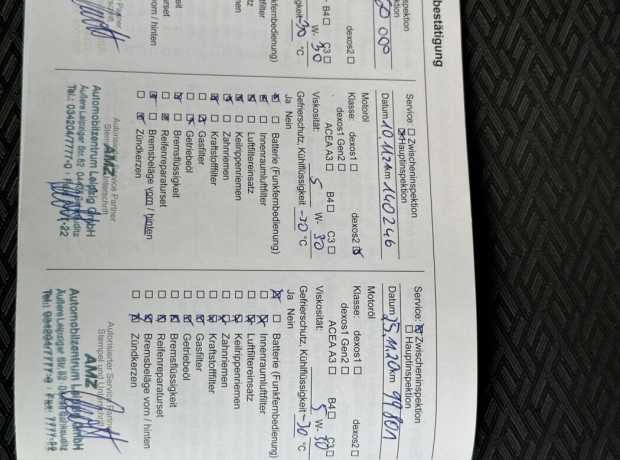 bestätigung
spektion
60 000
B4 ☐ C3 ☐
dexos2 ☐
W- 30
-30 °C
kfernbedienung)
vorn / hinten
Service: ☐ Zwischeninspektion
☒ Hauptinspektion
km 140246
Motoröl
Klasse: dexos1 ☐ dexos2 ☒
dexos1 Gen2 ☐
ACEA A3 ☐ B4 ☐ C3 ☐
Viskosität: 5 W- 30
Gefrierschutz, Kühlflüssigkeit °C
Ja Nein
Batterie (Funkfernbedienung)
Innenraumluftfilter
Luftfiltereinsatz
Keilrippenriemen
Zahnriemen
Kraftstofffilter
Gasfilter
Getriebeöl
Bremsflüssigkeit
Reifenreparaturset
Bremsbeläge vorn / hinten
Zündkerzen
AMZ
Automobilzentrum Leipzig GmbH
Service: ☒ Zwischeninspektion
☐ Hauptinspektion
Datum 25.11.20 km 99801
Motoröl
Klasse: dexos1 ☐ dexos2 ☐
dexos1 Gen2 ☐
ACEA A3 ☐ B4 ☐ C3 ☐
Viskosität: 5 W- 30
Gefrierschutz, Kühlflüssigkeit -30 °C
Ja Nein
Batterie (Funkfernbedienung)
Innenraumluftfilter
Luftfiltereinsatz
Keilrippenriemen
Zahnriemen
Kraftstofffilter
Gasfilter
Getriebeöl
Bremsflüssigkeit
Reifenreparaturset
Bremsbeläge vorn / hinten
Zündkerzen
Autorisierter Service Partner
Stempel und Unterschrift
AMZ
Automobilzentrum Leipzig GmbH